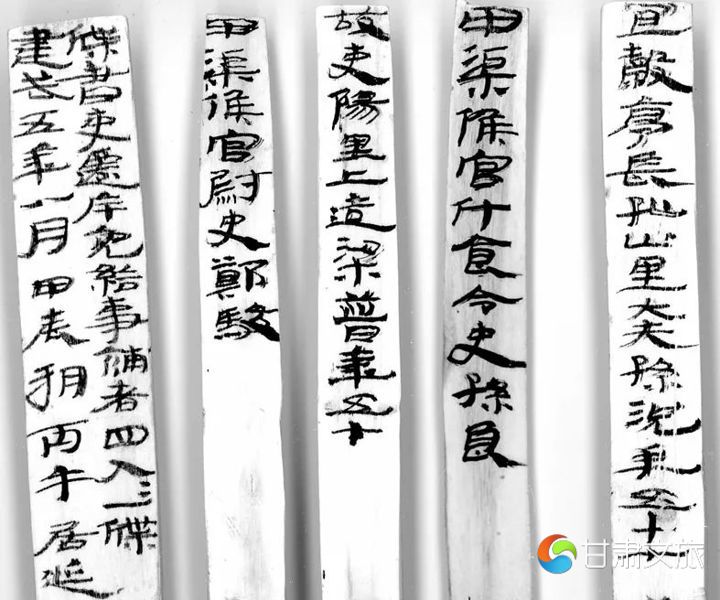 牒書吏遷斥免給事補者四人=一牒
建武五年八月甲辰朔丙午居延
甲渠候官尉史鄭駿
故吏陽里上造梁普年五十
甲渠候官斗食令史孫良
宜穀亭長孤山里大夫孫況年五十七
甘肃文旅